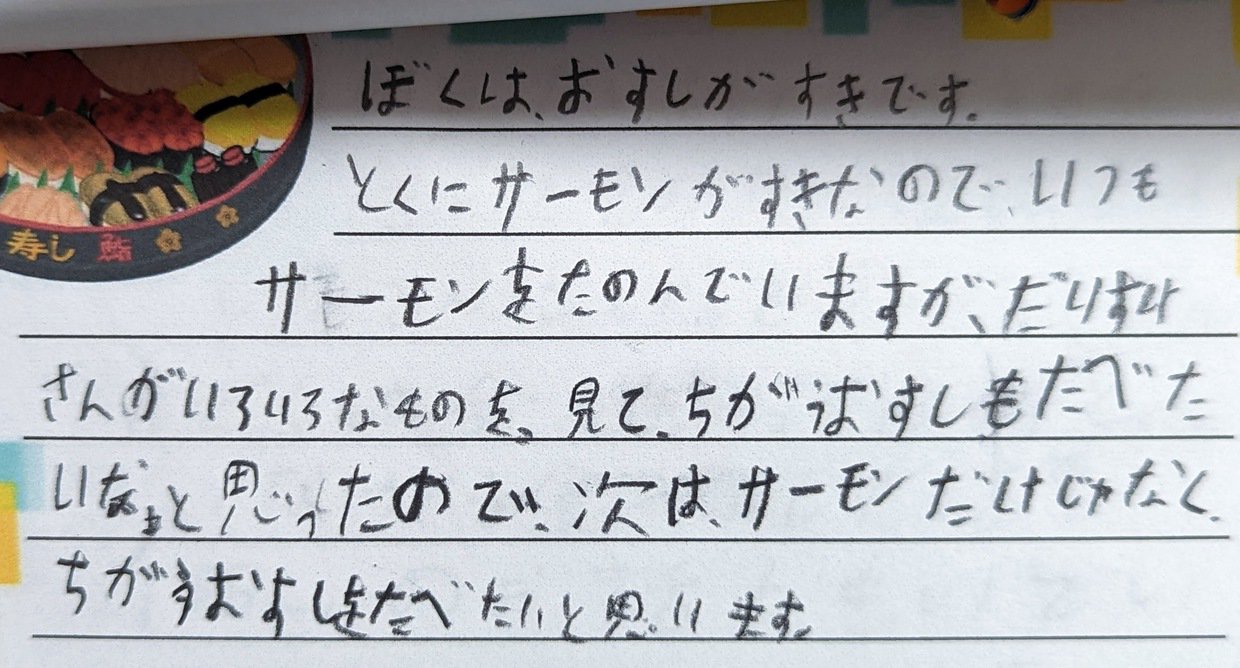 ぼくは、おすしがすきです。
とくにサーモンがすきなので、いつも
サーモンをたのんでいますが、だりすけ
さんがいろいろなものを。見て、ちがうおすしもたべた
いなぁと思ったので、次は、サーモンだけじゃなく、
ちがうおすしをたべたいと思います。
寿し 鮨